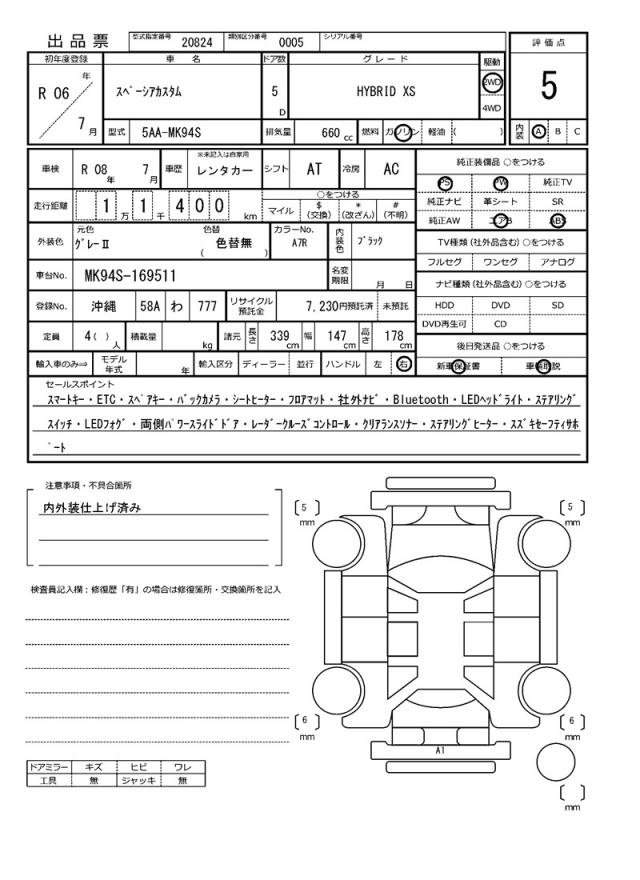 出品票 型式指定番号 20824 類別区分番号 0005 シリアル番号
評価点
初年度登録 車名 ドア数 グレード 駆動
R 06 年 7 月 スペーシアカスタム 5 D HYBRID XS 2WD 4WD
5
型式 5AA-MK94S 排気量 660 cc 燃料 ガソリン 軽油 ( )
内装 A B C
車検 R 08 年 7 月 車歴 ※未記入は自家用 レンタカー シフト AT 冷房 AC
純正装備品 ○をつける
PS PW 純正TV
走行距離 1 万 1 千 4 0 0 km ○をつける
マイル $ (交換) * (改ざん) # (不明)
純正ナビ 革シート SR
純正AW エアB ABS
外装色 元色 グレーⅡ 色替 色替無 ( ) カラーNo. A7R 内装色 ブラック
TV種類 (社外品含む) ○をつける
フルセグ ワンセグ アナログ
車台No. MK94S-169511 名変期限 月 日
ナビ種類 (社外品含む) ○をつける
登録No. 沖縄 58A わ 777 リサイクル預託金 7,230円預託済 未預託
HDD DVD SD
DVD再生可 CD
定員 4( ) 人 積載量 kg 諸元 長さ 339 cm 幅 147 cm 高さ 178 cm
後日発送品 ○をつける
輸入車のみ⇒ モデル年式 年 輸入区分 ディーラー ・ 並行 ハンドル 左 ・ 右
新車保証書 車輌取説
セールスポイント
スマートキー・ETC・スペアキー・バックカメラ・シートヒーター・フロアマット・社外ナビ・Bluetooth・LEDヘッドライト・ステアリング
スイッチ・LEDフォグ・両側パワースライドドア・レーダークルーズコントロール・クリアランスソナー・ステアリングヒーター・スズキセーフティサポ
ート
注意事項・不具合箇所
内外装仕上げ済み
検査員記入欄:修復歴「有」の場合は修復箇所・交換箇所を記入
( 5 ) mm
( 5 ) mm
( 6 ) mm
( 6 ) mm
A1
( ) mm
ドアミラー キズ ヒビ ワレ
工具 無 ジャッキ 無